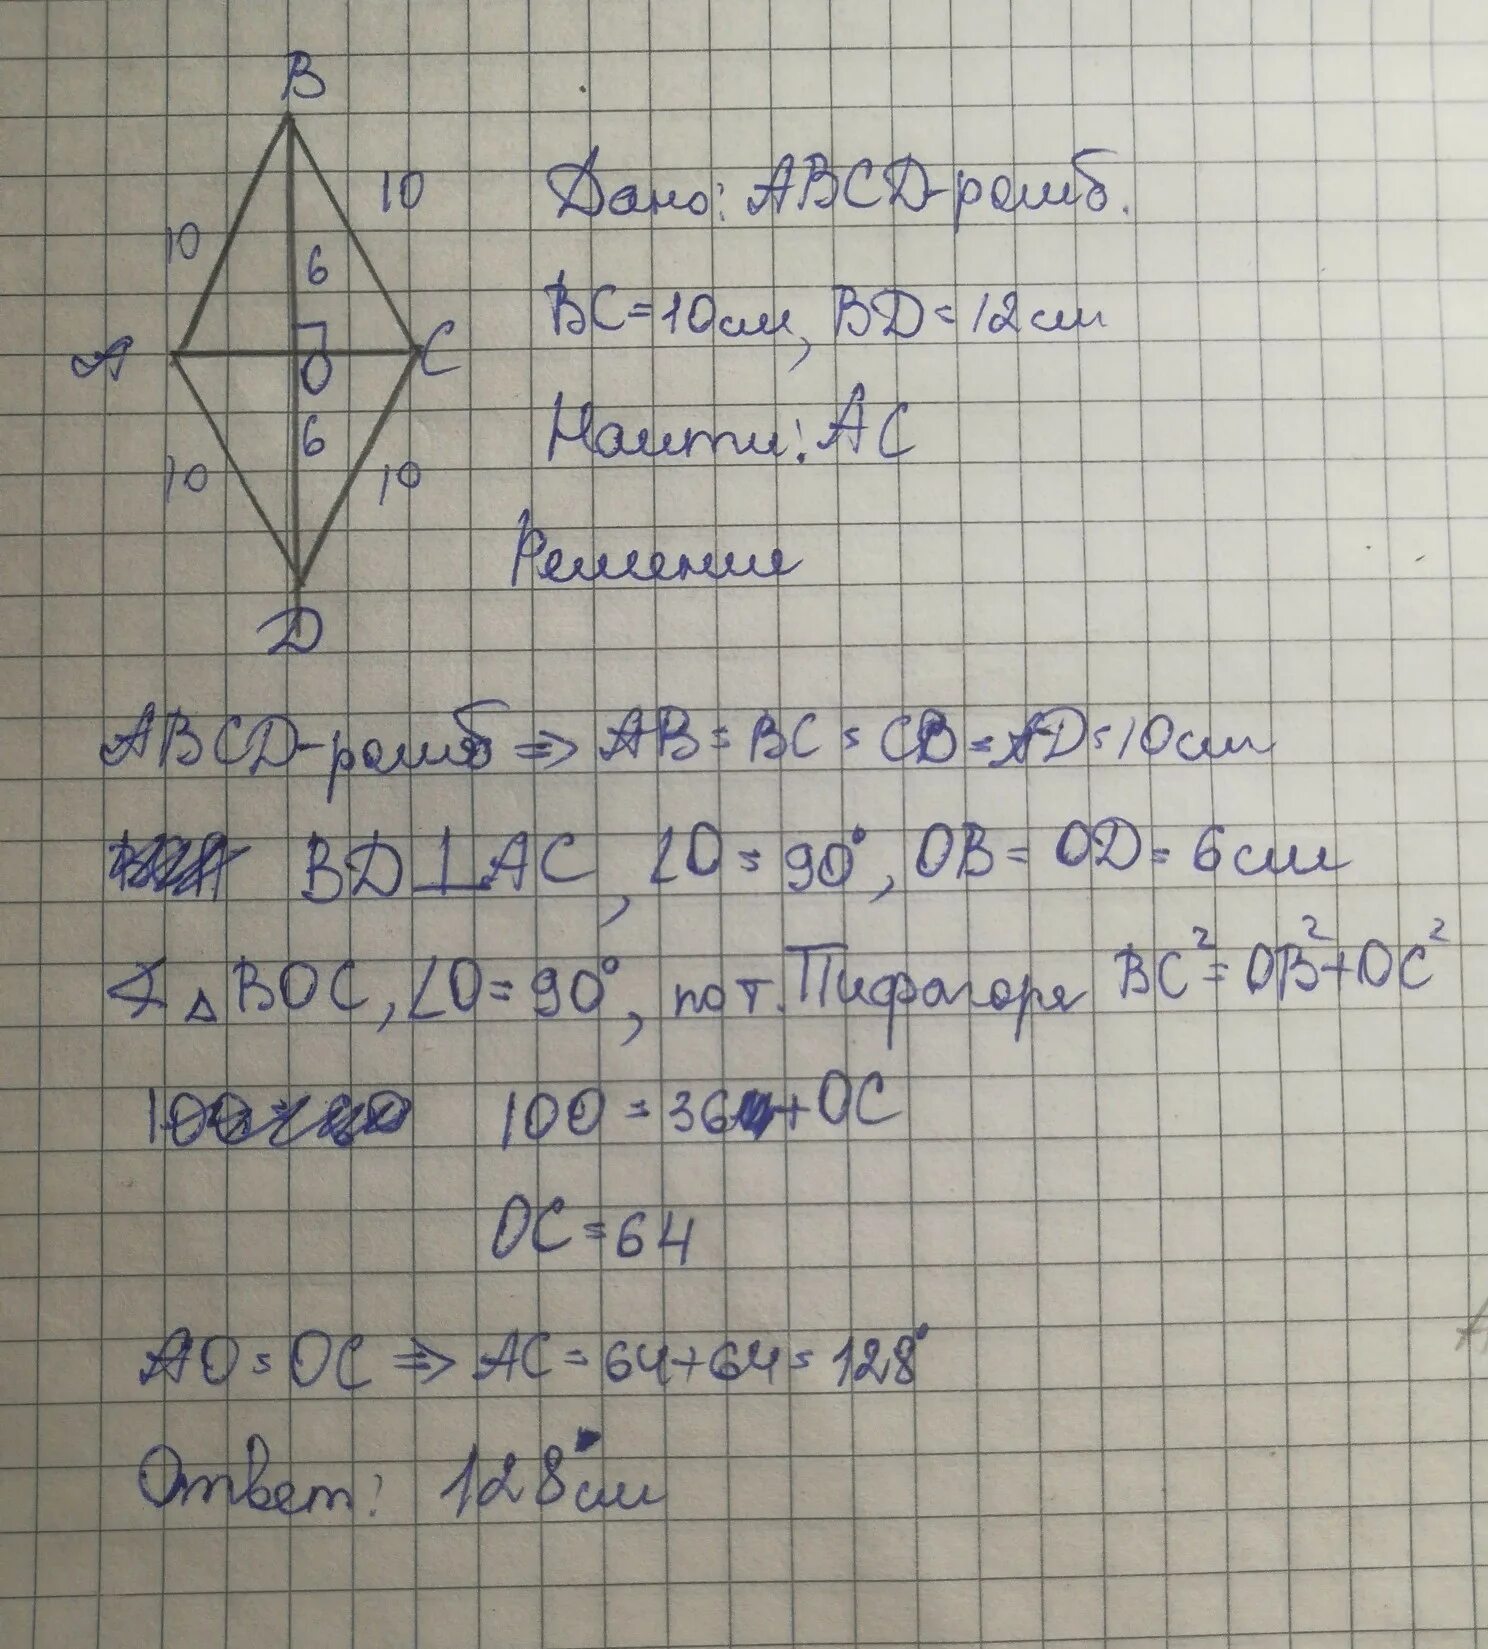 B
10
Дано: ABCD-ромб.
10
6
BC=10см, BD=12см
A
O
C
6
Найти: AC
10
10
Решение
D
ABCD-ромб => AB=BC=CB=AD=10см
BD⊥AC, ∠O=90°, OB=OD=6см
∢ △BOC, ∠O=90°, по т. Пифагора BC²=OB²+OC²
100=36+OC
OC=64
AO=OC => AC=64+64=128°
Ответ: 128см